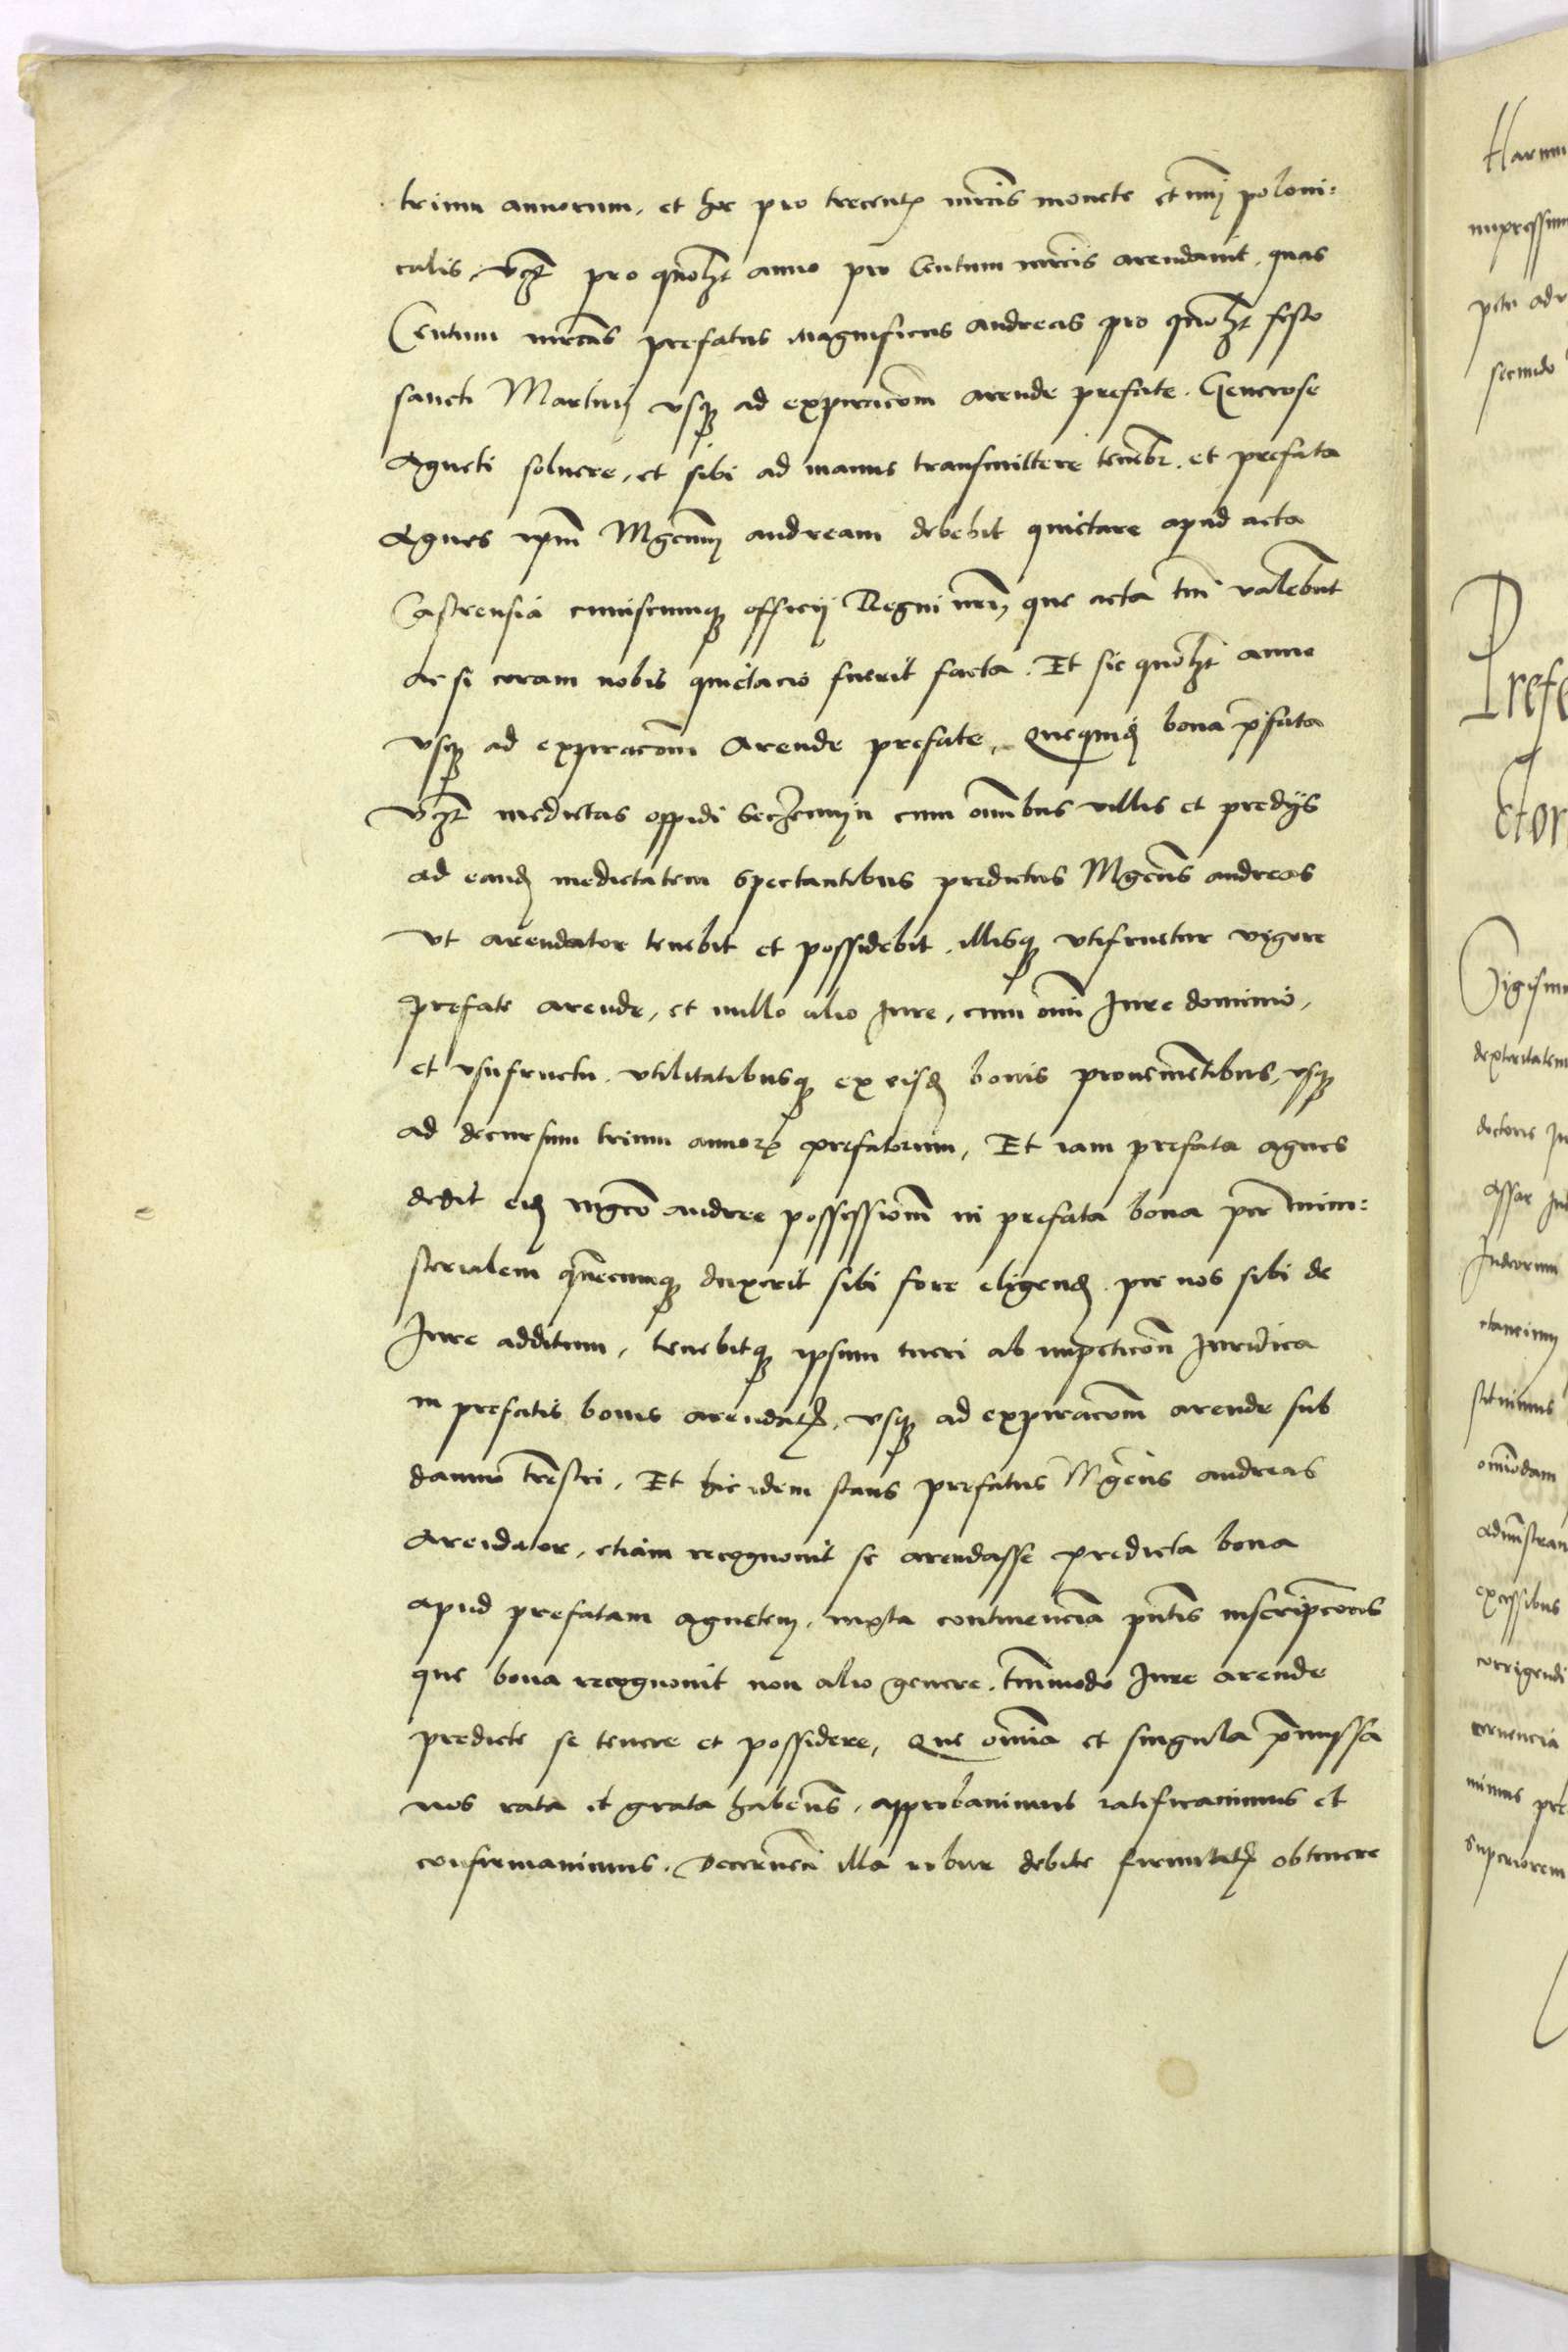 trium annorum, et hoc pro trecentis mrcis monete et nuj poloni:
calis, vcz pro quolzt anno pro Centum mrcis arendauit, quas
Centum mrcas prefatus magnificus andreas pro quolzt festo
sancti Martini vsq ad expiracom arende prefate. Generose
Agneti soluere, et sibi ad manus transmittere tenebr. et prefata
Agnes ipm Mgcum andream debebit quietare apud acta
Castrensia cuiuscumq officij Regni nri, que acta tm valebunt
ac si coram nobis quietacio fuerit facta. Et sic quolzt anno
vsq ad expiracom Arende prefate, Quequid bona pfata
vcz medietas oppidi Seczemyn cum omibus villis et predijs
ad eand medietatem spectantibus predictus Mgcus andreas
vt arendator tenebit et possidebit, illisq vtifruetur vigore
prefate arende, et nullo alio Iure, cum omi Iure dominio,
et vsufructu, vtilitatibusq ex eisd bonis prouenientibus, vsq
ad decursum trium annor prefatorum, Et iam prefata agnes
dedit eid mgco andree possessiom in prefata bona per mini:
sterialem quemcumq duxerit sibi fore eligend per nos sibi de
Iure additum, tenebitq ipsum tueri ab impeticon Iuridica
in prefatis bonis arendatis, vsq ad expiracom arende sub
damno trestri, Et hic idem stans prefatus Mgcus andreas
Arendator, etiam recognouit se arendasse predicta bona
apud prefatam agnetem, iuxta continencia pntis inscripcionis
que bona recognouit non alio genere, tmmodo Iure arende
predicte se tenere et possidere, Que omia et singula pmissa
nos rata et grata habens, approbauimus ratificauimus et
confirmauimus. Decernen illa robur debite firmitatis obtinere
Harum
impressum
petr
secundo
Prefe
ctor
Sigism
dexteritatem
doctoris
Assar
Iudeorum
stituimus
omimodam
administran
excessibus
corrigendi
superiorem